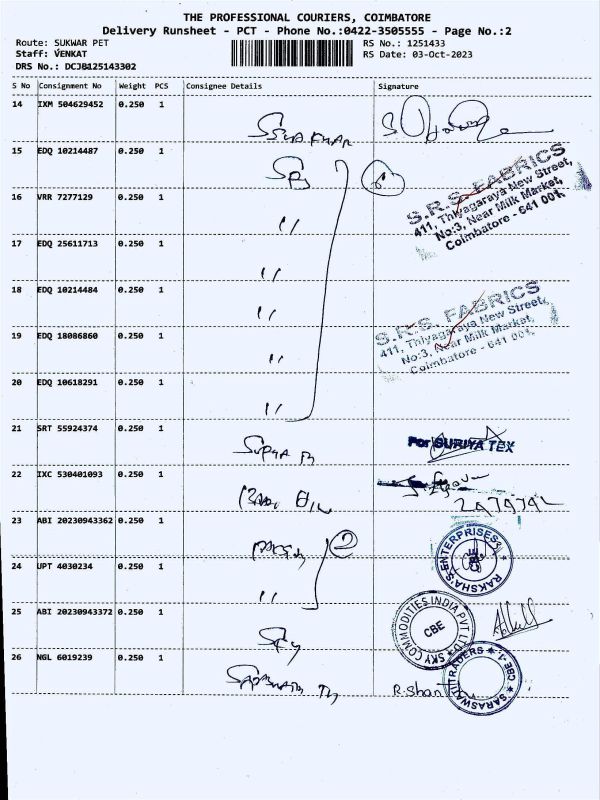 THE PROFESSIONAL COURIERS, COIMBATORE
Delivery Runsheet - PCT - Phone No.:0422-3505555 - Page No.:2
Route: SUKWAR PET
RS No.: 1251433
Staff: VENKAT
RS Date: 03-Oct-2023
DRS No.: DCJB125143302
S No Consignment No Weight PCS Consignee Details Signature
14 IXM 504629452 0.250 1
15 EDQ 10214487 0.250 1
S.R.S. FABRICS
411, Thiyagaraya New Street,
No:3, Near Milk Market,
Coimbatore - 641 001.
16 VRR 7277129 0.250 1 "
17 EDQ 25611713 0.250 1 "
18 EDQ 10214484 0.250 1 "
S.R.S. FABRICS
411, Thiyagaraya New Street,
No:3, Near Milk Market,
Coimbatore - 641 001.
19 EDQ 18086860 0.250 1 "
20 EDQ 10618291 0.250 1 "
21 SRT 55924374 0.250 1
For SURIYA TEX
22 IXC 530401093 0.250 1
23 ABI 20230943362 0.250 1 2
RAKSHA'S ENTERPRISES
24 UPT 4030234 0.250 1 "
25 ABI 20230943372 0.250 1 Sky
SKY COMMODITIES INDIA PVT LTD
CBE
26 NGL 6019239 0.250 1
R. Shan
SARASWATI TRADERS CBE-1.